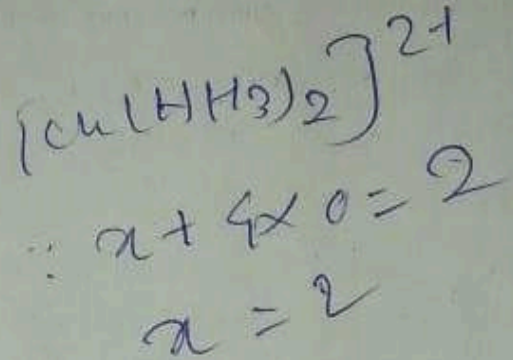 [Cu(HH3)2]2+
∵ x + 4x0 = 2
x = 2